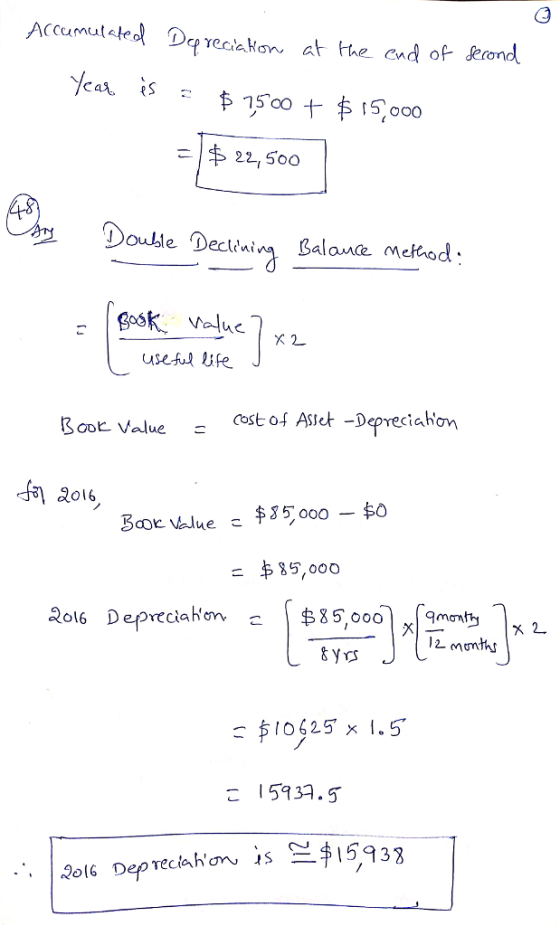 ③
Accumulated Depreciation at the end of second
Year is = $ 7,500 + $ 15,000
= $ 22,500
48 Ans
Double Declining Balance method:
= [Book value / useful life] × 2
Book Value = cost of Asset - Depreciation
for 2016,
Book Value = $85,000 - $0
= $85,000
2016 Depreciation = [$85,000 / 8 yrs] × [9 months / 12 months] × 2
= $10,625 × 1.5
= 15937.5
∴ 2016 Depreciation is ≅ $15,938